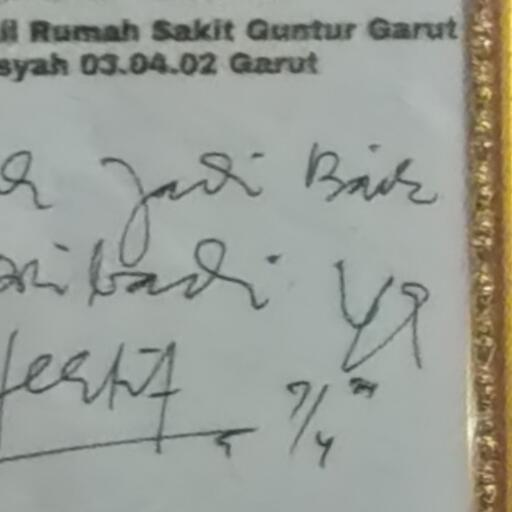 il Rumah Sakit Guntur Garut
syah 03.04.02 Garut
Jadi Baik
ribadi yg
7/4